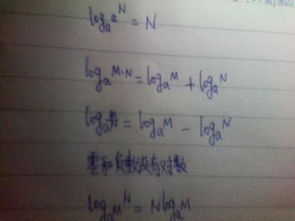 logₐaᴺ = N
logₐM·N = logₐM + logₐN
logₐ = logₐM - logₐN
零和负数没有对数
logₐMᴺ = NlogₐM